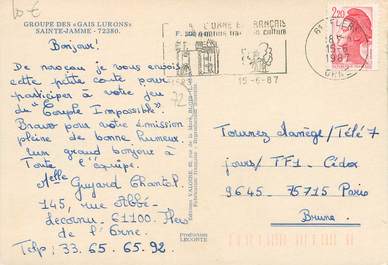 10 €
GROUPE DES «GAIS LURONS»
SAINTE-JAMME - 72380.
Bonjour!
De nouveau je vous envois
cette petite carte pour
participer à votre jeu
du "Couple Impossible".
Bravo pour votre émission
pleine de bonne humeur.
Un grand bonjour à
Toute l'équipe.
Melle Guyard Chantal.
145, rue Abbé-
Lecornu - 61100. Flers
de l'Orne
Telp: 33.65.65.92.
72
L'ORNE EN FRANÇAIS
culture
15-6-87
61 FLERS
15-6
1987
ORNE
2,20
Tournez Manège/Télé 7
jours/TF1 - Cédex
9645 - 75715 Paris
Brune
Production
LECONTE